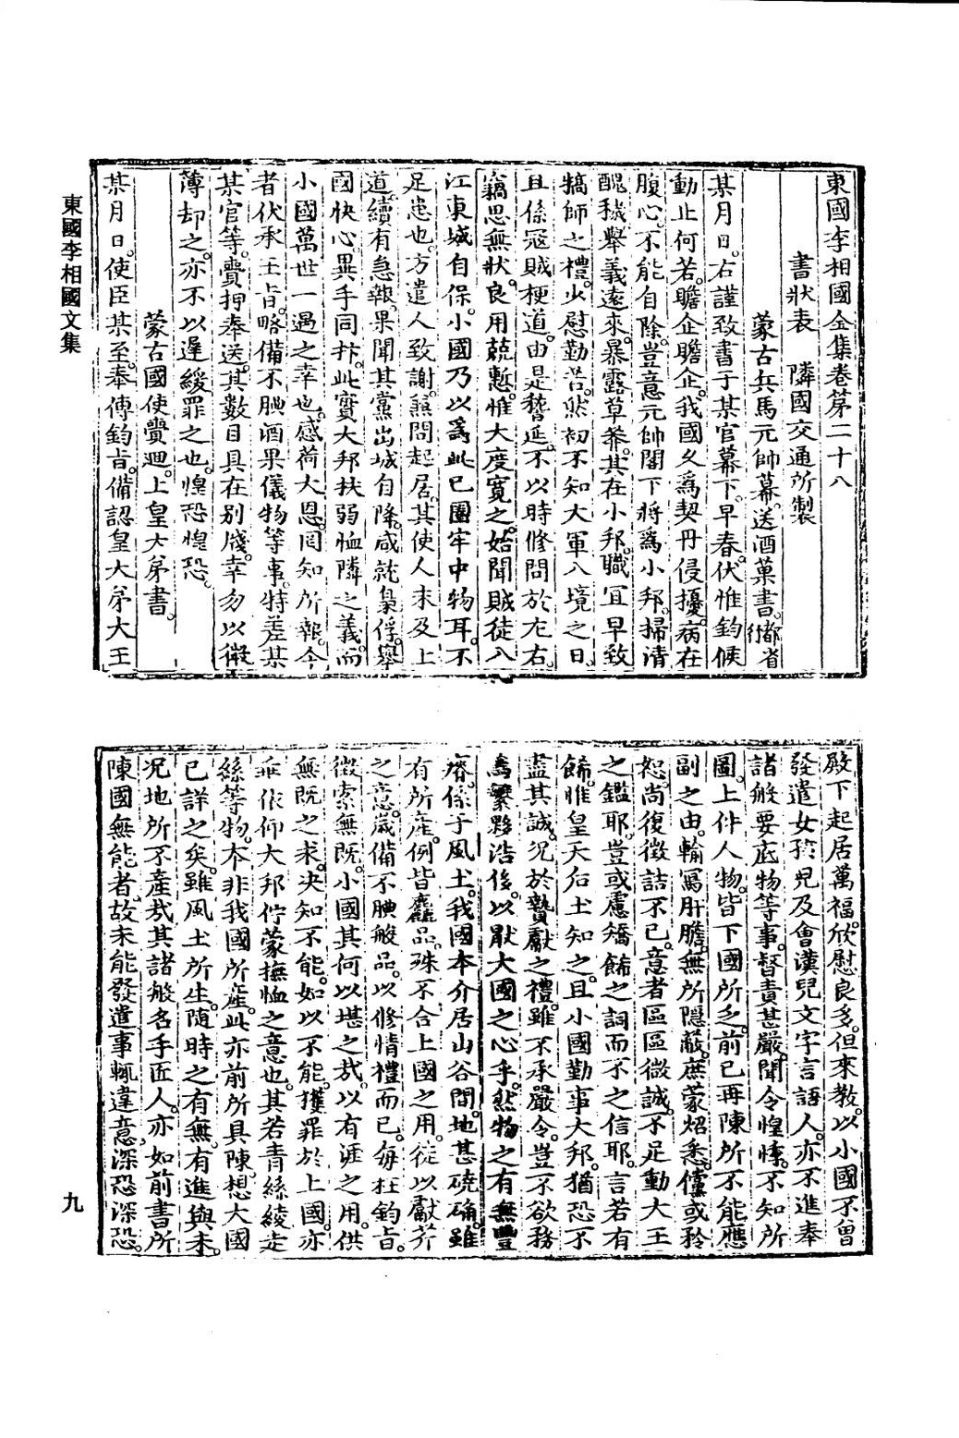 東國李相國全集卷第二十八
書狀表　隣國交通所製
蒙古兵馬元帥幕送酒菓書。都省行
某月日。右謹致書于某官幕下。早春。伏惟鈞候
動止何若。瞻企瞻企。我國久爲契丹侵擾。病在
腹心。不能自除。豈意元帥閣下將爲小邦。掃淸
醜穢。擧義遠來。暴露草莽。其在小邦。職宜早致
犒師之禮。少慰勤苦。然初不知大軍入境之日。
且係寇賊梗道。由是稽延。不以時修問於左右。
竊思無狀。良用兢慙。惟大度寬之。始聞賊徒入
江東城自保。小國乃以爲此已圈牢中物耳。不
足患也。方遣人致謝。兼問起居。其使人未及上
道。續有急報。果聞其黨出城自降。咸就梟俘。擧
國快心。異手同抃。此實大邦扶弱恤隣之義。而
小國萬世一遇之幸也。感荷大恩。罔知所報。今
者伏承王旨。略備不腆酒果儀物等事。特差某
某官等。賫押奉送。其數目具在別牋。幸勿以微
薄却之。亦不以遲緩罪之也。惶恐惶恐。
蒙古國使賫迴。上皇大弟書。
某月日。使臣某至。奉傳鈞旨。備認皇大弟大王
殿下起居萬福。欣慰良多。但來教。以小國不曾
發遣女孩兒及會漢兒文字言語人。亦不進奉
諸般要底物等事。督責甚嚴。聞令惶悸。不知所
圖。上件人物。皆下國所乏。前已再陳所不能應
副之由。輸寫肝膽。無所隱蔽。庶蒙炤悉。儻或矜
恕。尚復徵詰不已。意者區區微誠。不足動大王
之鑑耶。豈或慮矯餙之詞而不之信耶。言若有
餙。惟皇天后土知之。且小國勤事大邦。猶恐不
盡其誠。況於贄獻之禮。雖不承嚴令。豈不欲務
爲繁夥浩侈。以猒大國之心乎。然物之有無豐
瘠。係于風土。我國本介居山谷間。地甚磽确。雖
有所產。例皆麤品。殊不合上國之用。徒以獻芹
之意。歲備不腆般品。以修情禮而已。每枉鈞旨。
徵索無旣。小國其何以堪之哉。以有涯之用。供
無旣之求。决知不能。如以不能。獲罪於上國。亦
乖依仰大邦佇蒙撫恤之意也。其若靑絲綾走
絲等物。本非我國所產。此亦前所具陳。想大國
已詳之矣。雖風土所生。隨時之有無。有進與未。
況地所不產哉。其諸般名手匠人。亦如前書所
陳國無能者。故未能發遣。事輒違意。深恐深恐。
東國李相國文集
九